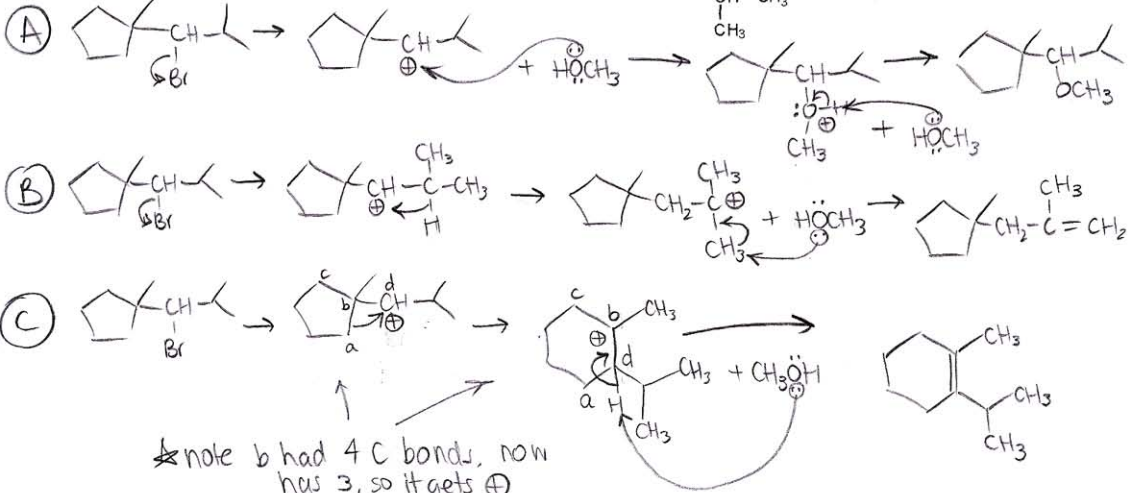 CH CH₃
CH₃
A
CH
Br
CH
⊕
+ HOCH₃
CH
:O-H
⊕
CH₃
+ HOCH₃
CH
OCH₃
B
CH
Br
CH₃
CH-C-CH₃
⊕
H
CH₃
CH₂-C⊕
CH₃
+ HOCH₃
CH₃
CH₂-C=CH₂
C
CH
Br
c
b
d
CH
⊕
a
c
b
CH₃
⊕
d
a
H
CH₃
CH₃
+ CH₃OH
CH₃
CH₃
CH₃
☆note b had 4 C bonds, now
has 3, so it gets ⊕